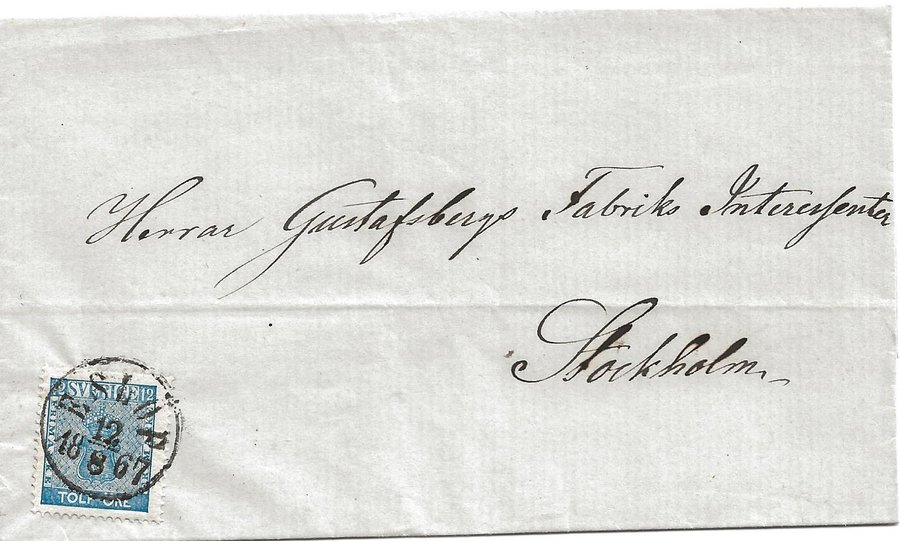 Herrar Gustafsbergs Fabriks Interessenter
Stockholm
SVERIGE 12
ESLÖF
12
18 8 67
TOLF ÖRE